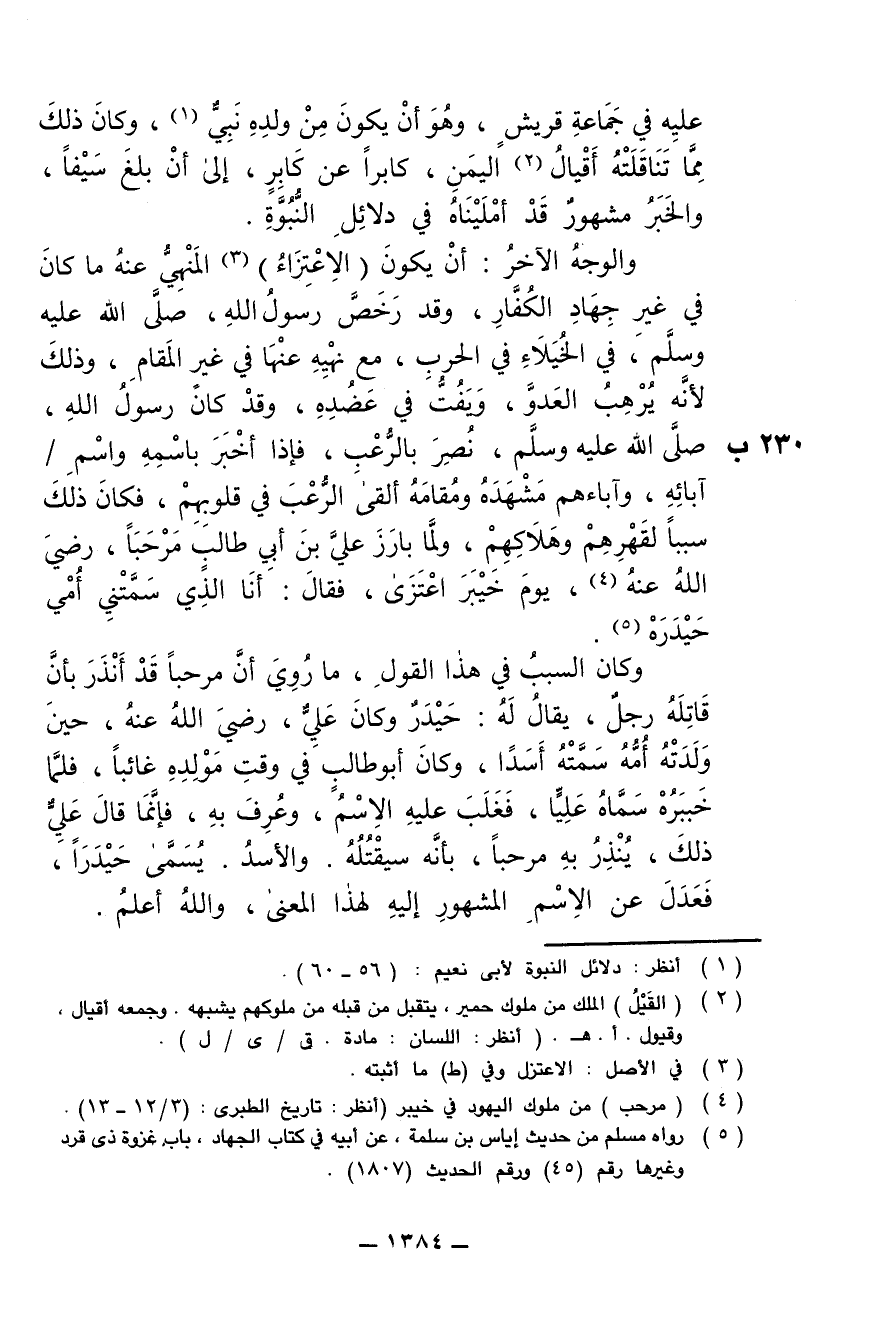 عليه في جَمَاعةِ قريشٍ ، وهُوَ أنْ يكونَ مِنْ ولدِهِ نَبِيٌّ (١) ، وكانَ ذلكَ
مِمَّا تَنَاقَلَتْهُ أَقْيالُ (٢) اليمَنِ ، كابراً عن كَابِرٍ ، إلىٰ أنْ بلغَ سَيْفاً ،
والخَبَرُ مشهورٌ قَدْ أمْلَيْنَاهُ في دلائِلِ النُّبُوَّةِ .
والوجهُ الآخرُ : أنْ يكونَ ( الِاعْتِزَاءُ ) (٣) المَنْهِيُّ عنهُ ما كانَ
في غيرِ جِهَادِ الكُفَّارِ ، وقد رَخَصَّ رسولُ اللهِ ، صلَّى الله عليه
وسلَّم ، في الخُيَلَاءِ في الحربِ ، مع نهْيِهِ عنْهَا في غيرِ المَقامِ ، وذلكَ
لأنَّه يُرْهِبُ العَدوَّ ، وَيَفُتُّ في عَضُدِهِ ، وقدْ كانَ رسولُ اللهِ ،
٢٣٠ ب صلَّى الله عليه وسلَّم ، نُصِرَ بالرُّعْبِ ، فإذا أخْبَرَ باسْمِهِ واسْمِ /
آبائِهِ ، وآباءهم مَشْهَدَهُ ومُقامَهُ ألقىٰ الرُّعْبَ في قلوبِهِمْ ، فكانَ ذلكَ
سبباً لقَهْرِهِمْ وهَلَاكِهِمْ ، ولمَّا بارَزَ عليَّ بنَ أبي طالبٍ مَرْحَبَاً ، رضيَ
اللهُ عنهُ (٤) ، يومَ خَيْبَرَ اعْتَزَىٰ ، فقالَ : أنَا الذِي سَمَّتْنِي أُمْي
حَيْدَرَهْ (٥) .
وكان السببُ في هذٰا القولِ ، ما رُوِيَ أنَّ مرحباً قَدْ أَنْذَرَ بأنَّ
قَاتِلَهُ رجلٌ ، يقالُ لَهُ : حَيْدَرٌ وكانَ عَلِيٌّ ، رضيَ اللهُ عنهُ ، حينَ
وَلَدَتْهُ أُمُّهُ سَمَّتْهُ أَسَدًا ، وكانَ أبوطالبٍ في وقتِ مَوْلِدِهِ غائباً ، فلمَّا
خَبَرُهْ سَمَّاهُ عَلِيًّا ، فَغَلَبَ عليهِ الِاسْمُ ، وعُرِفَ بهِ ، فإنَّمَا قالَ عَلِيٌّ
ذلكَ ، يُنْذِرُ بهِ مرحباً ، بأنَّه سيقْتُلُهُ . والأسدُ . يُسَمَّىٰ حَيْدَرَاً ،
فَعَدَلَ عن الِاسْمِ المشهورِ إليهِ لهذٰا المعنىٰ ، واللهُ أعلمُ .
( ١ ) أنظر : دلائل النبوة لأبى نعيم : ( ٥٦ – ٦٠ ) .
( ٢ ) ( القَيْلُ ) الملك من ملوك حمير ، يتقبل من قبله من ملوكهم يشبهه . وجمعه أقيال ،
وقيول . أ . هـ . ( أنظر : اللسان : مادة . ق / ى / ل ) .
( ٣ ) في الأصل : الاعتزل وفي (ط) ما أثبته .
( ٤ ) ( مرحب ) من ملوك اليهود في خيبر (أنظر : تاريخ الطبرى : (١٢/٣ – ١٣) .
( ٥ ) رواه مسلم من حديث إياس بن سلمة ، عن أبيه في كتاب الجهاد ، باب غزوة ذى قرد
وغيرها رقم (٤٥) ورقم الحديث (١٨٠٧) .
– ١٣٨٤ –